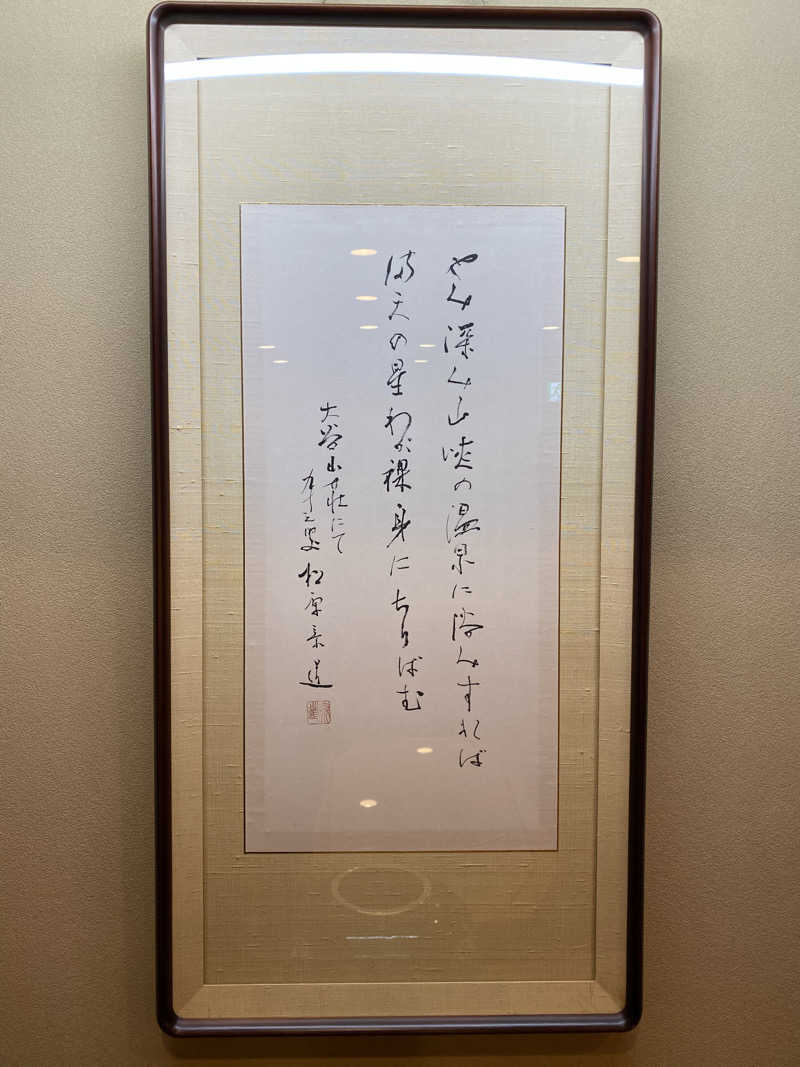 やみ深み山峡の温泉に浴みすれば
満天の星わが裸身にちりばむ
大谷山荘にて
九十三叟 松原泰道